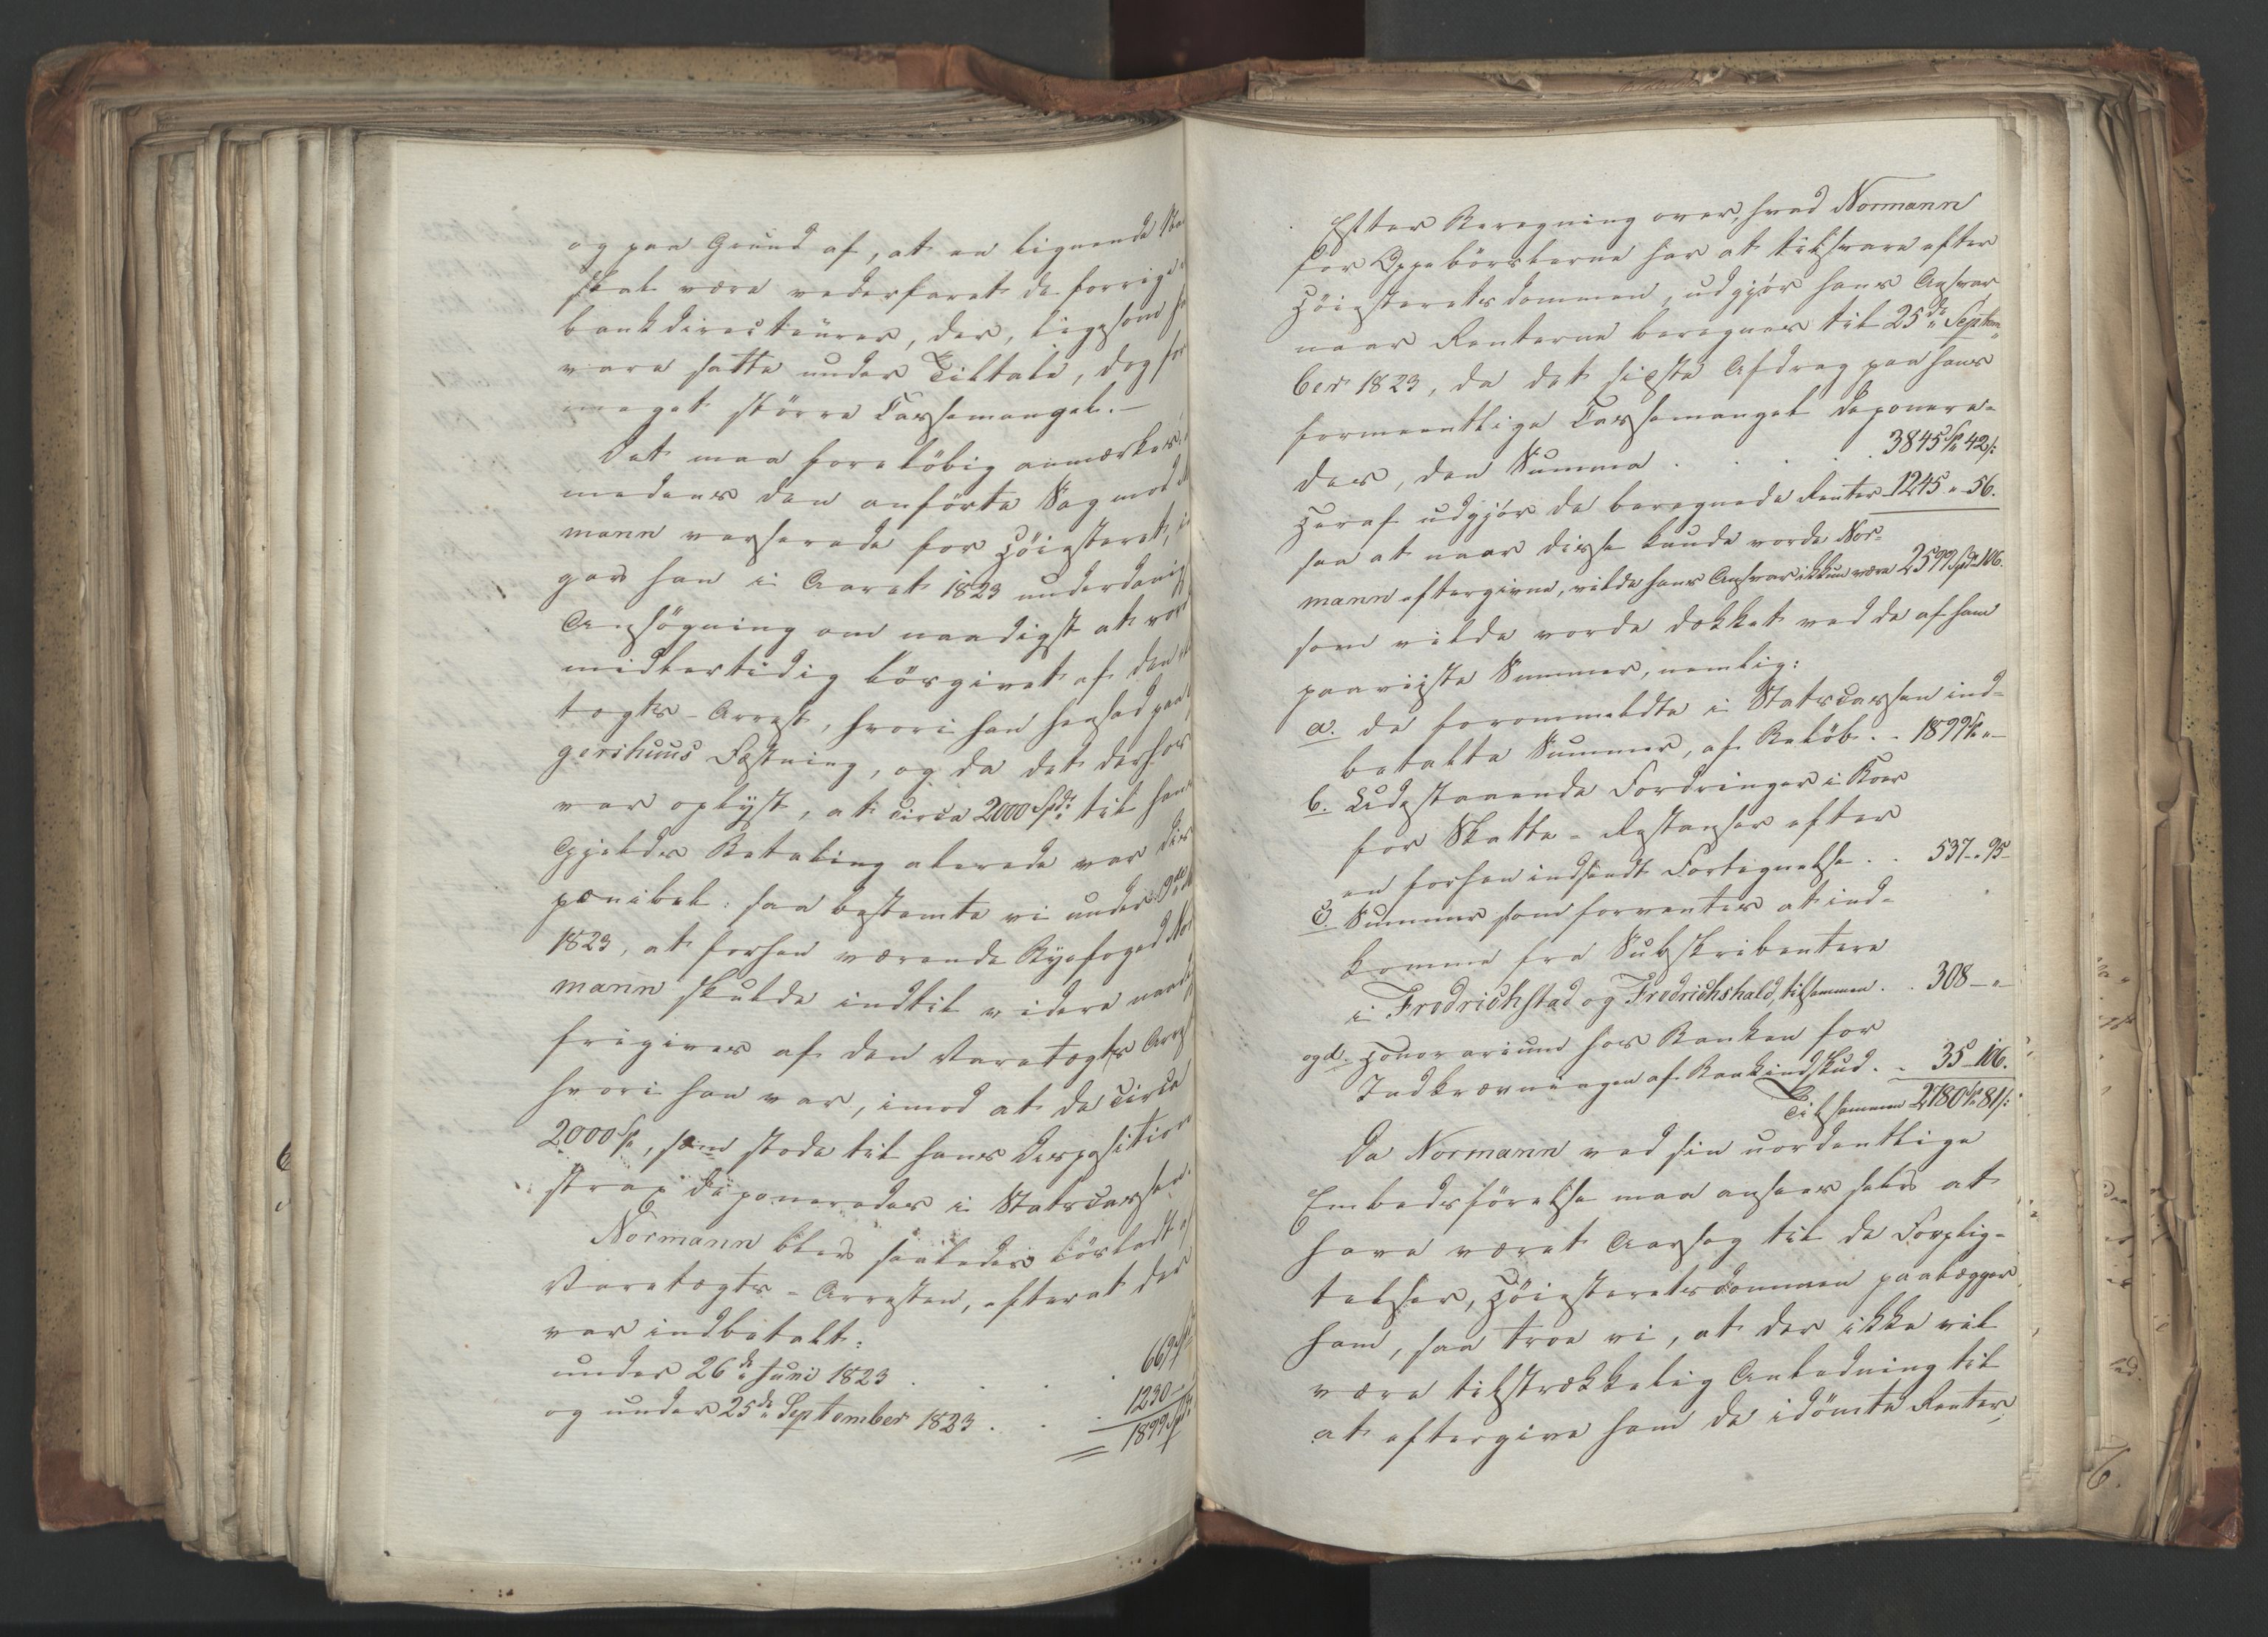 og paa Grund af, at en lignende
skal være vederfaret de forrige
bankdirecteurer, der, ligesom
vare satte under Tiltale, dog for
meget större Cassemangel. –
Det maa forelöbig anmærkes,
medens den anförte Sag mod
mann verserede for Höiesteret,
gav han i Aaret 1823 underdanig
Ansögning om naadigst at vor
midlertidig lösgivet af den
tægts-Arrest, hvori han hensad paa
gershuus Fæstning, og da det derhos
var oplyst, at circa 2000 Spd. til hans
Gjelds Betaling allerede var dis
ponibel: saa bestemte vi under 9de
1823, at forhen værende Byefoged Nor
mann skulde indtil videre naad
frigives af den Varetægts Arrest
hvori han var, imod at de circa
2000 Sp, som stode til hans Disposition
strax deponeredes i Statscassen.
Normann blev saaledes lösladt af
Varetægts-Arresten, efterat der
var indbetalt:
under 26de Juni 1823 . . . 669
og under 25de September 1823 . . . 1230
1899 Spd.
Efter Beregning over, hvad Normann
for Oppebörslerne har at tilsvare efter
Höiesteretsdommen, udgjör hans Ansvar
naar Renterne beregnes til 25de Septem-
ber 1823, da det sidste Afdrag paa hans
formeentlige Cassemangel deponere-
des, den Summa . . . . 3845 Sp 42 s:
Heraf udgjör de beregnede Renter 1245 " 56.
saa at naar disse kunde vorde Nor-
mann eftergivne, vilde hans Ansvar ikkun være 2599 Spd. 106.
som vilde vorde dækket ved de af ham
paaviiste Summer, nemlig:
a. de forommeldte i Statscassen ind-
betalte Summer, af Belöb . . 1899 Sp " –
b. Udestaaende Fordringer i Moss
for Skatte-Restanser efter
en forhen indsendt Fortegnelse . . 537 " 95
c. Summer som forventes at ind-
komme fra Subskribentere
i Fredrichstad og Fredrichshald, tilsammen . . 308 – "
og d. Honorarium hos Banken for
Indkrævningen af Bankindskud . . 35 – 106.
Tilsammen 2780 Sp 81 s:
Da Normann ved sin uordentlige
Embedsförelse maa ansees selv at
have været Aarsag til de Forplig-
telser, Höiesteretsdommen paalægger
ham, saa troe vi, at der ikke vil
være tilstrækkelig Anledning til
at eftergive ham de idömte Renter,